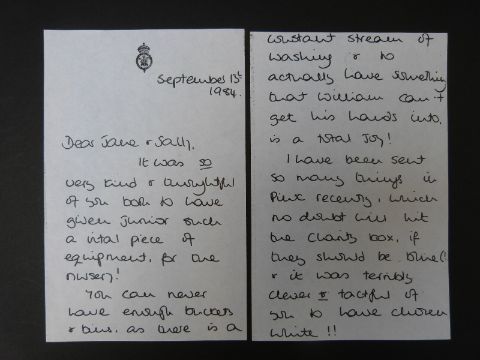 September 1st
1984.
Dear Jane & Sally,
It was so
very kind & thoughtful
of you both to have
given junior such
a vital piece of
equipment, for the
nursery!
You can never
have enough buckets
& bins, as there is a
constant stream of
washing & to
actually have something
that William can't
get his hands into,
is a total joy!
I have been sent
so many things in
Pink recently, which
no doubt will hit
the charity box, if
they should be blue(!)
& it was terribly
clever & tactful of
you to have chosen
white !!